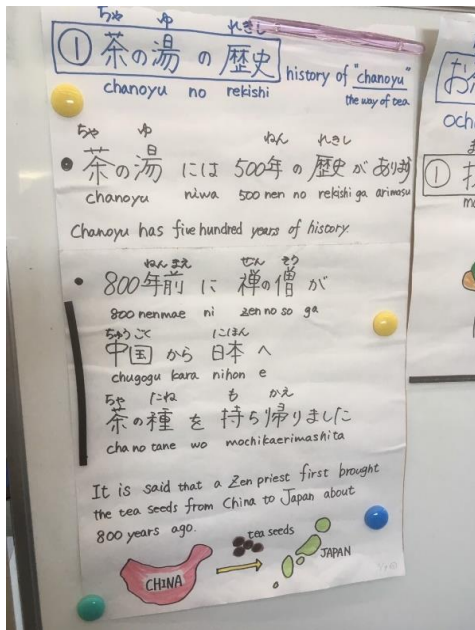 ちゃ ゆ れきし
① 茶の湯 の 歴史 history of "chanoyu"
chanoyu no rekishi the way of tea
ちゃ ゆ ねん れきし
• 茶の湯 には 500年 の 歴史 が あります
chanoyu niwa 500 nen no rekishi ga arimasu
Chanoyu has five hundred years of history.
ねん まえ ぜん そう
• 800年前 に 禅の僧 が
800 nenmae ni zen no so ga
ちゅうごく にほん
中国 から 日本 へ
chugogu kara nihon e
ちゃ たね も かえ
茶の種 を 持ち帰りました
cha no tane wo mochikaerimashita
It is said that a Zen priest first brought
the tea seeds from China to Japan about
800 years ago.
tea seeds
CHINA
JAPAN
お
och
①